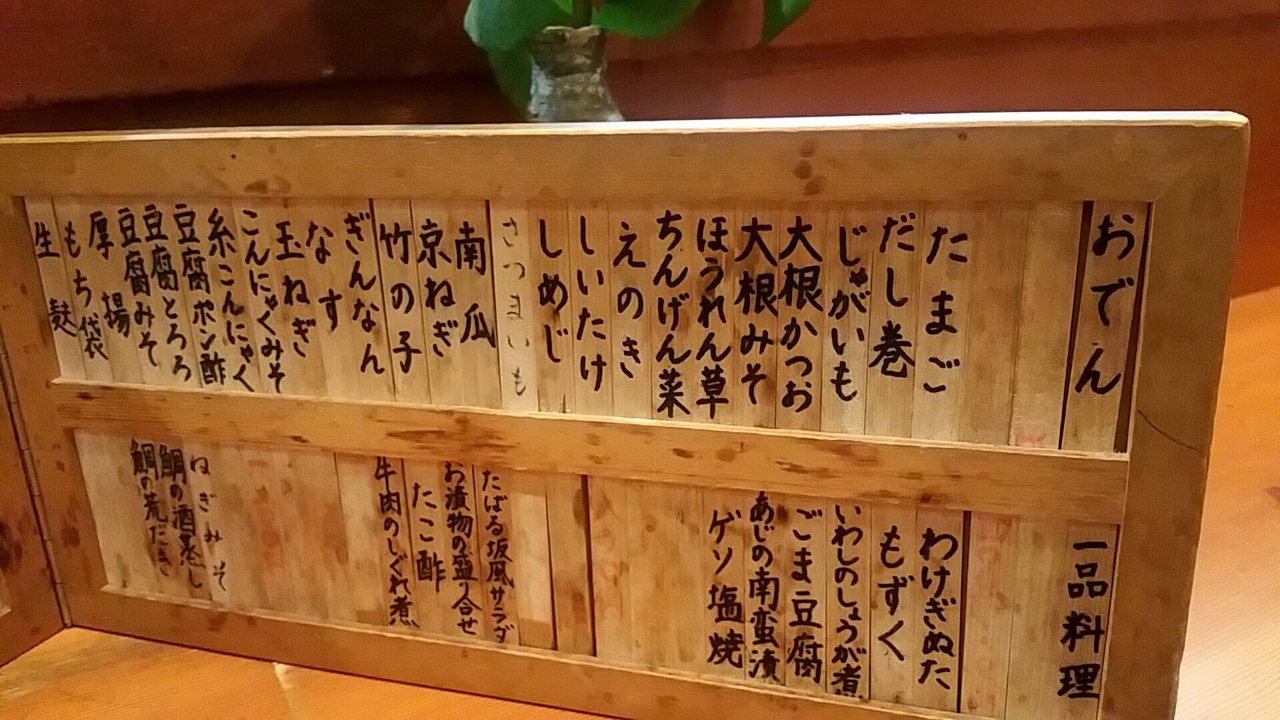 おでん
たまご
だし巻
じゃがいも
大根かつお
大根みそ
ほうれん草
ちんげん菜
えのき
しいたけ
しめじ
さつまいも
南瓜
京ねぎ
竹の子
ぎんなん
なす
玉ねぎ
こんにゃくみそ
糸こんにゃく
豆腐ポン酢
豆腐とろろ
豆腐みそ
厚揚
もち袋
生麩
一品料理
わけぎぬた
もずく
いわしのしょうが煮
ごま豆腐
あじの南蛮漬
ゲソ塩焼
たばる坂風サラダ
お漬物の盛り合せ
たこ酢
牛肉のしぐれ煮
ねぎみそ
鯛の酒蒸し
鯛の荒だき